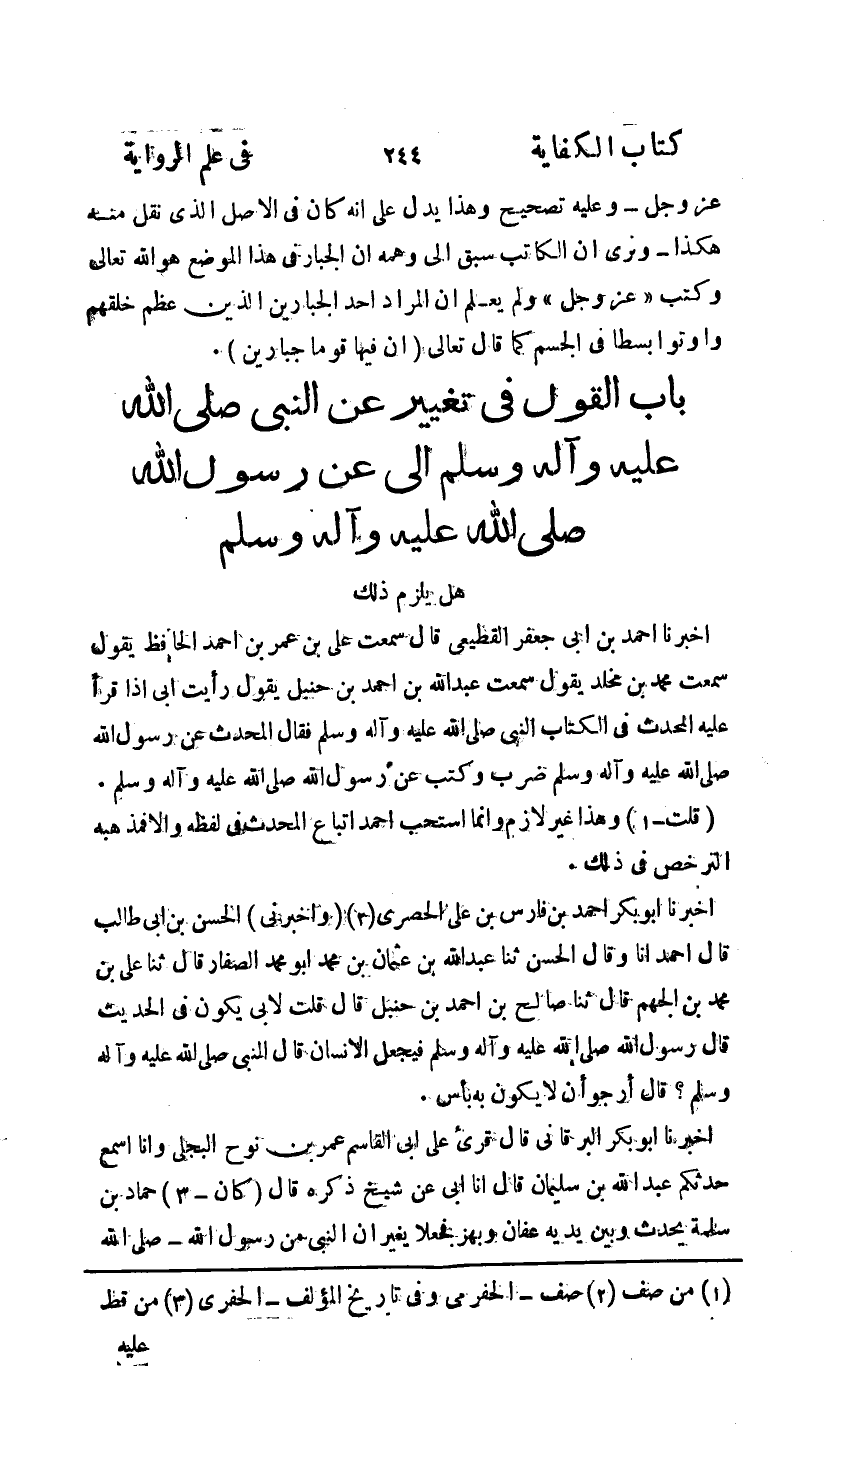 كتاب الكفاية ٢٤٤ فى علم الرواية
عز وجل ــ وعليه تصحيح وهذا يدل على انه كان فى الاصل الذى نقل منه
هكذا ــ ونرى ان الكاتب سبق الى وهمه ان الجبار فى هذا الموضع هو الله تعالى
وكتب « عز وجل » ولم يعلم ان المراد احد الجبارين الذين عظم خلقهم
واوتوا بسطا فى الجسم كما قال تعالى ( ان فيها قوما جبارين ) ٠
باب القول فى تغيير عن النبى صلى الله
عليه وآله وسلم الى عن رسول الله
صلى الله عليه وآله وسلم
هل يلزم ذلك
اخبرنا احمد بن ابى جعفر القطيعى قال سمعت على بن عمر بن احمد الحافظ يقول
سمعت محمد بن مخلد يقول سمعت عبدالله بن احمد بن حنبل يقول رأيت ابى اذا قرأ
عليه المحدث فى الكتاب النبى صلى الله عليه وآله وسلم فقال المحدث عن رسول الله
صلى الله عليه وآله وسلم ضرب وكتب عن رسول الله صلى الله عليه وآله وسلم ٠
( قلت ــ ١ ) وهذا غير لازم وانما استحب احمد اتباع المحدث فى لفظه والا فمذهبه
الترخص فى ذلك ٠
اخبرنا ابوبكر احمد بن فارس بن على الحصرى (٢) ( واخبرنى ) الحسن بن ابى طالب
قال احمد انا وقال الحسن ثنا عبدالله بن عثمان بن محمد ابو محمد الصفار قال ثنا على بن
محمد بن الجهم قال ثنا صالح بن احمد بن حنبل قال قلت لابى يكون فى الحديث
قال رسول الله صلى الله عليه وآله وسلم فيجعل الانسان قال النبى صلى الله عليه وآله
وسلم ؟ قال أرجو أن لا يكون به بأس ٠
اخبرنا ابو بكر البرقانى قال قرئ على ابى القاسم عمر بن نوح البجلى وانا اسمع
حدثكم عبد الله بن سليمان قال انا ابى عن شيخ ذكره قال ( كان ــ ٣ ) حماد بن
سلمة يحدث وبين يديه عفان وبهز فجعلا يغيران النبى من رسول الله ــ صلى الله
(١) من صف (٢) صف ــ الخفرمى وفى تاريخ المؤلف ــ الحفرى (٣) من قط
عليه